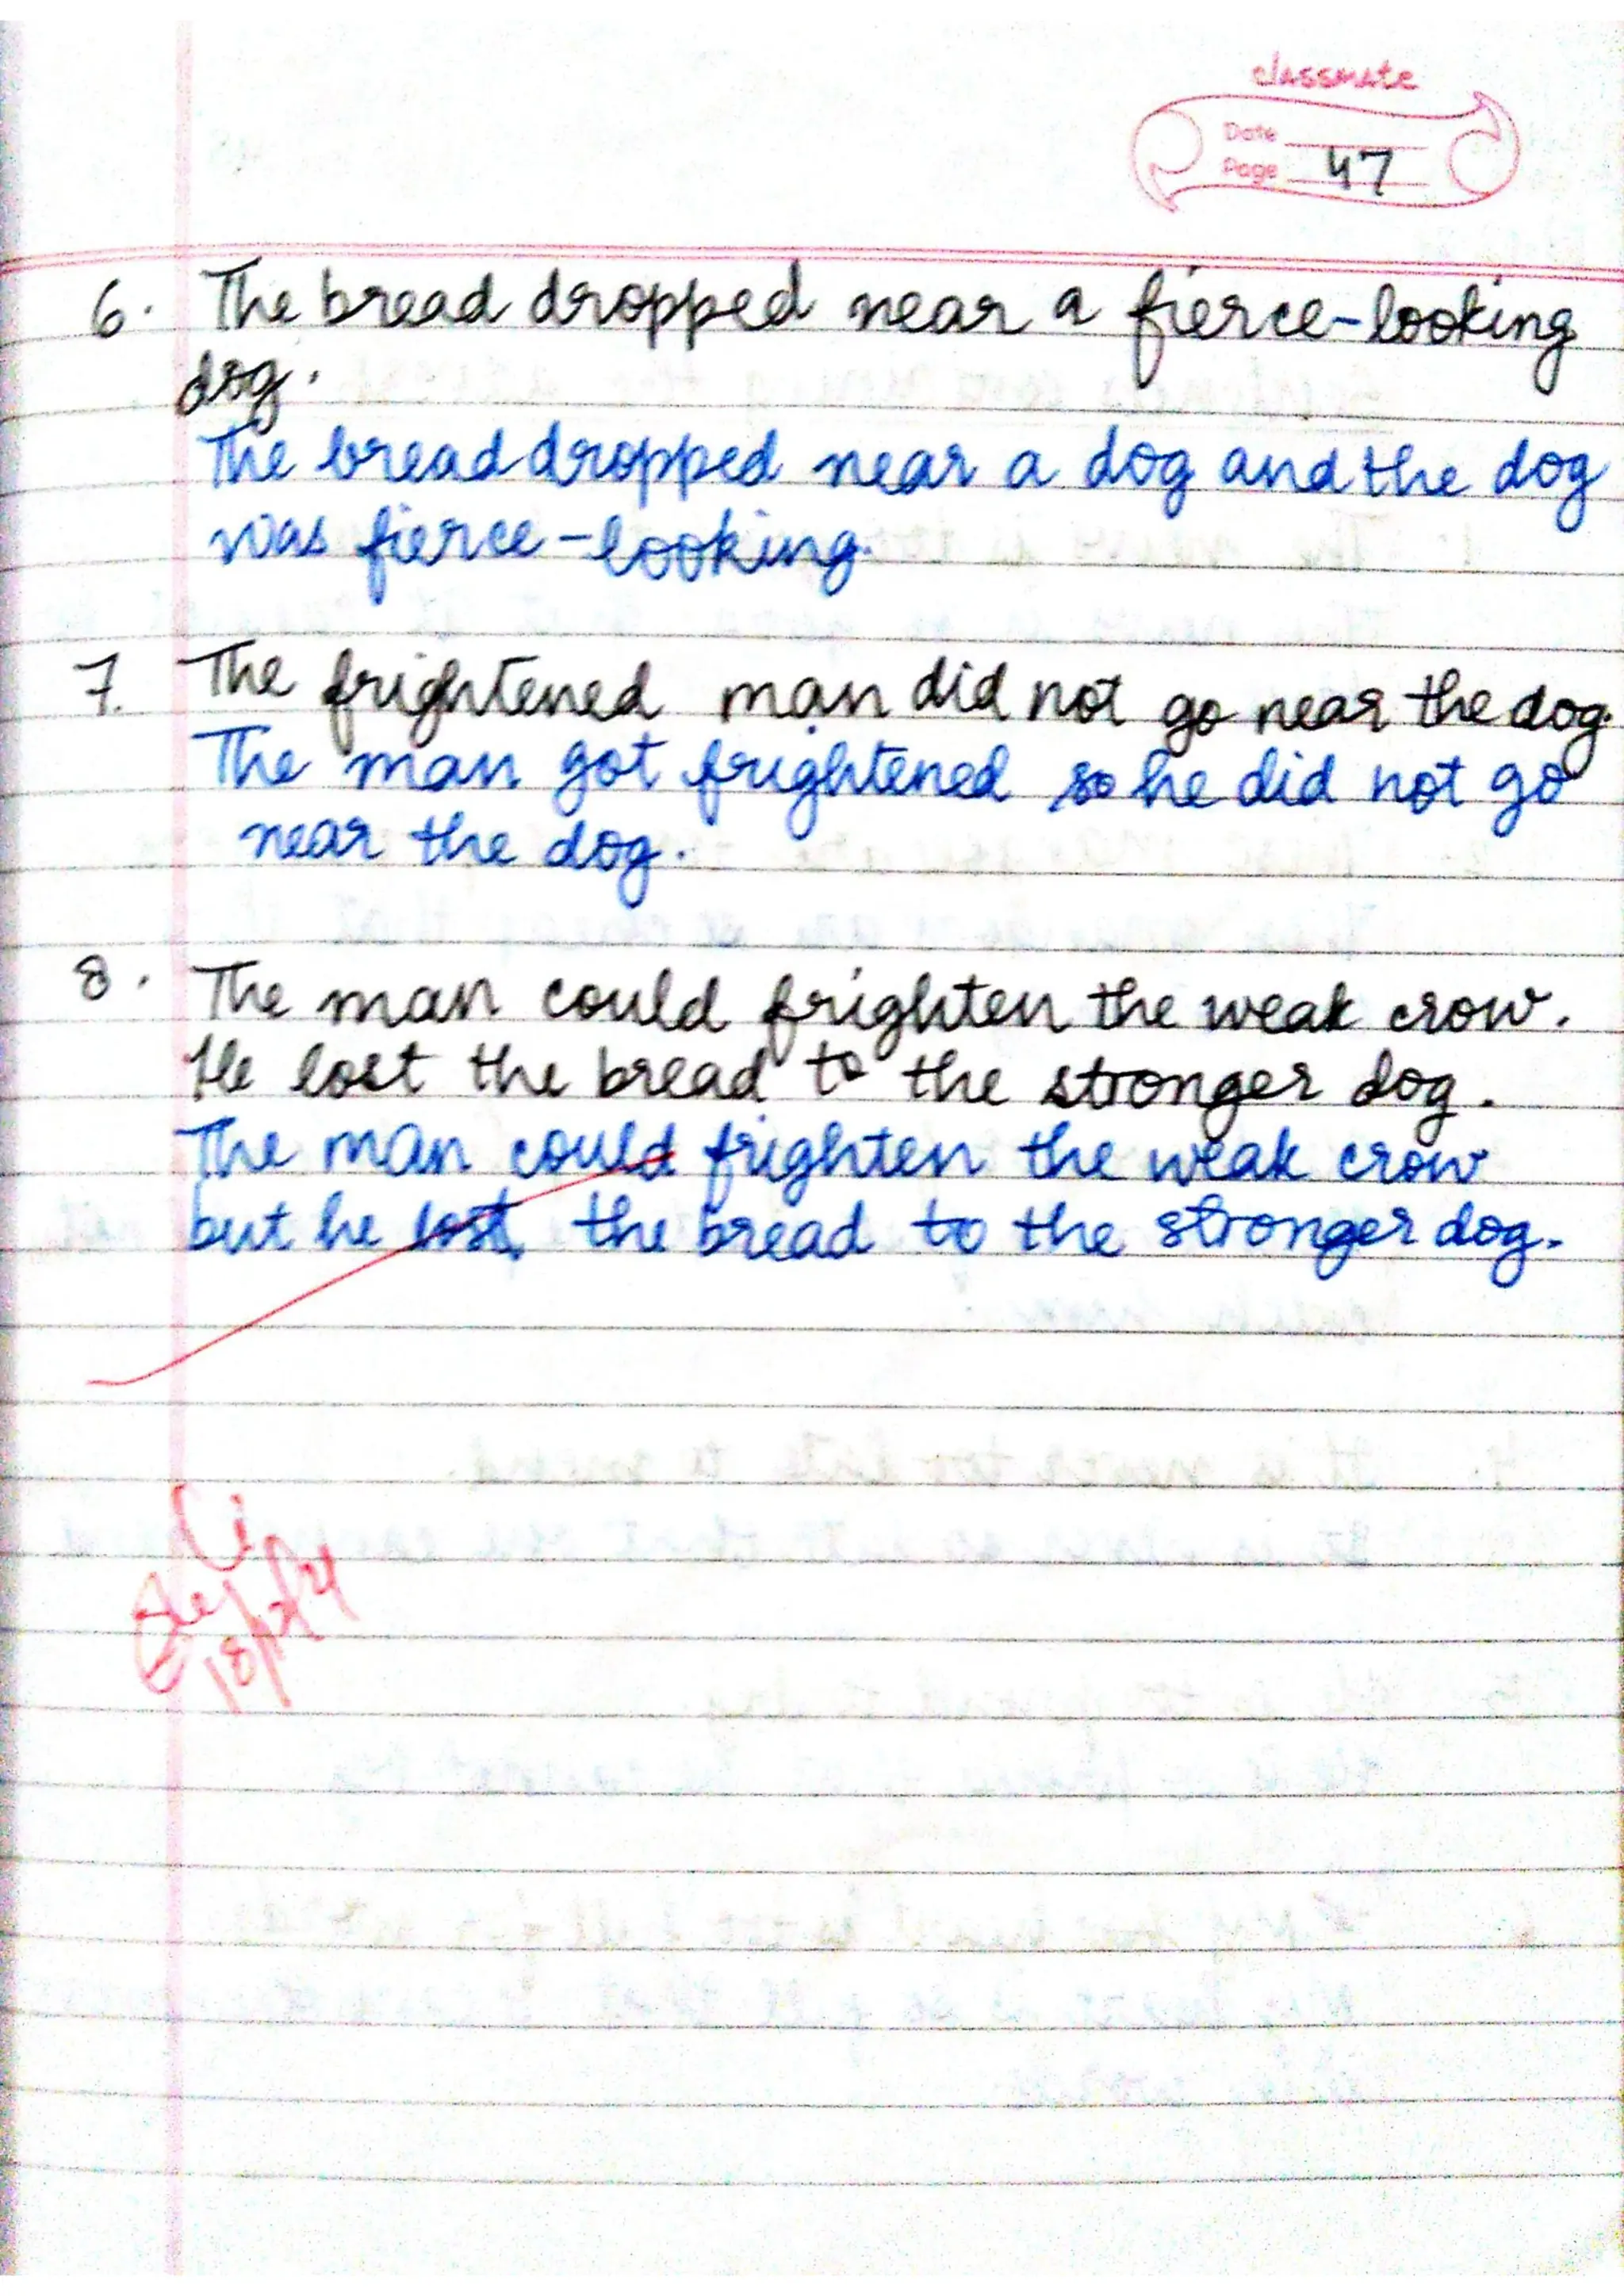 classmate
Date
Page 47
6. The bread dropped near a fierce-looking
dog.
The bread dropped near a dog and the dog
was fierce-looking.
7. The frightened man did not go near the dog.
The man got frightened so he did not go
near the dog.
8. The man could frighten the weak crow.
He lost the bread to the stronger dog.
The man could frighten the weak crow
but he lost the bread to the stronger dog.